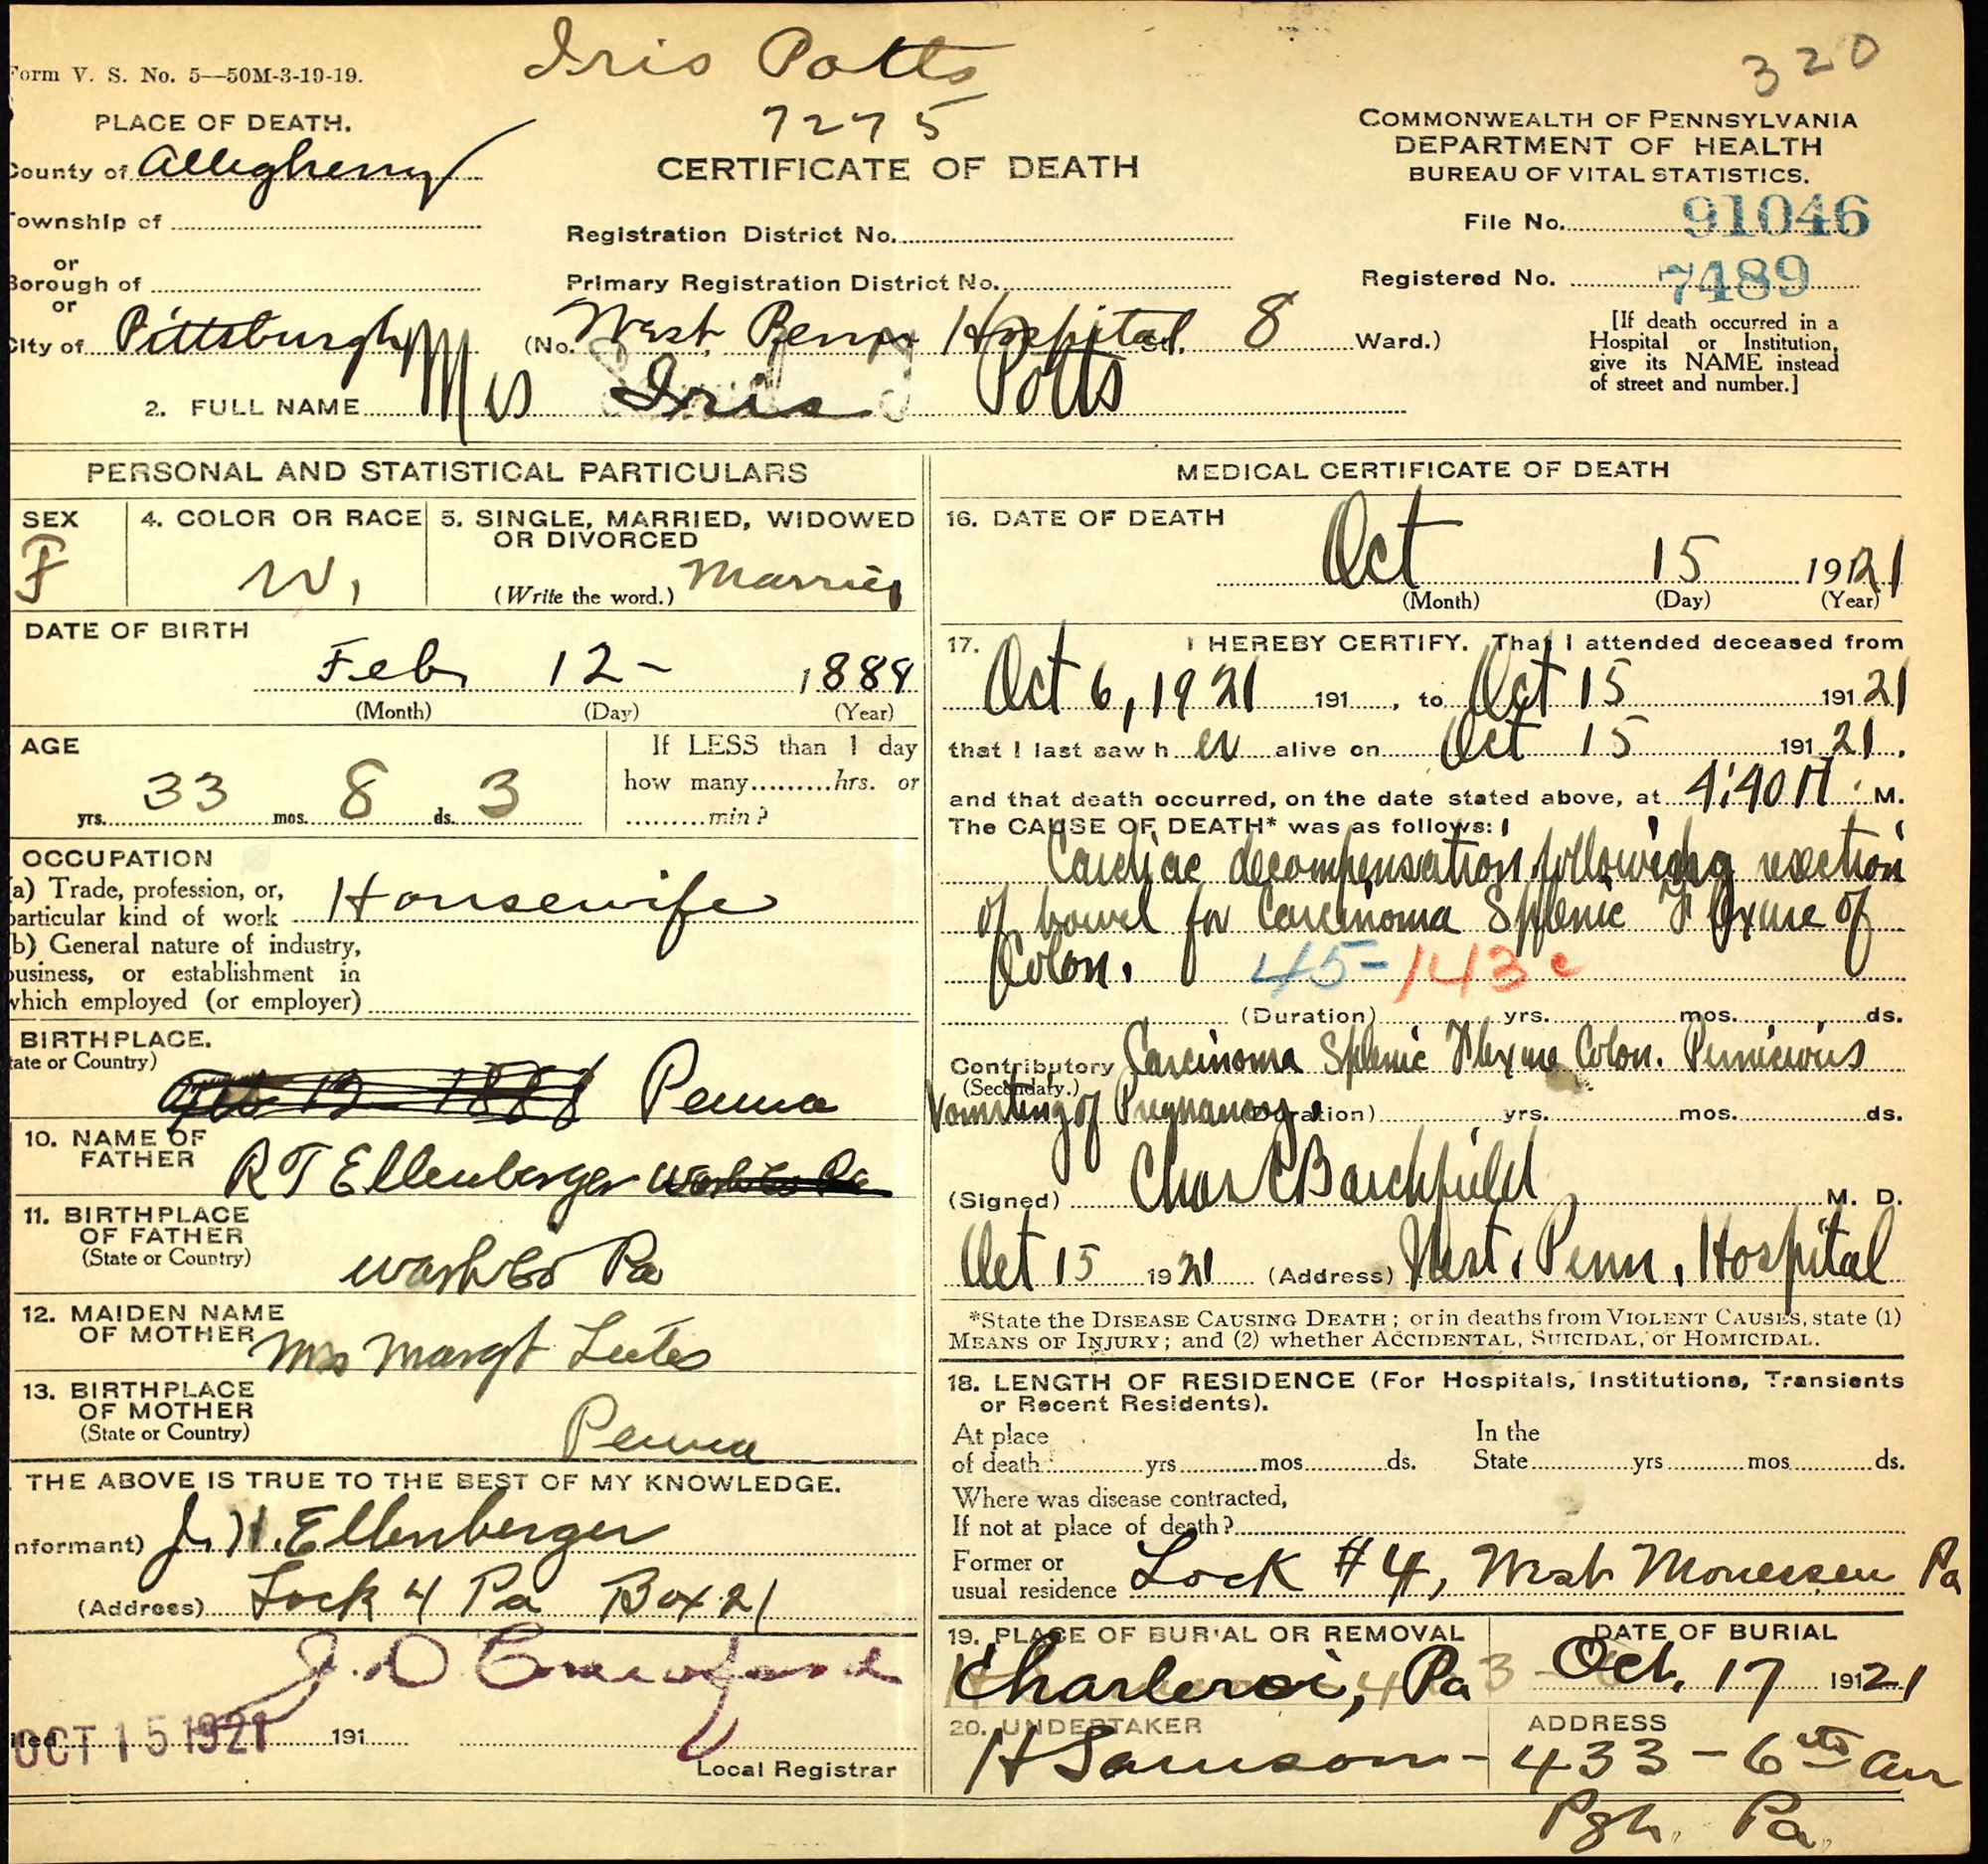 Iris Potts
320
Form V. S. No. 5—50M-3-19-19.
7275
PLACE OF DEATH.
County of Allegheny
CERTIFICATE OF DEATH
COMMONWEALTH OF PENNSYLVANIA
DEPARTMENT OF HEALTH
BUREAU OF VITAL STATISTICS.
Township of
or
Borough of
or
City of Pittsburgh
Registration District No.
Primary Registration District No.
(No. West. Penn Hospital St. 8 Ward.)
File No. 91046
Registered No. 7489
[If death occurred in a
Hospital or Institution,
give its NAME instead
of street and number.]
2. FULL NAME Mrs Iris Potts
PERSONAL AND STATISTICAL PARTICULARS
SEX
F
4. COLOR OR RACE
W,
5. SINGLE, MARRIED, WIDOWED
OR DIVORCED
(Write the word.) Married
DATE OF BIRTH
Feb 12 - 1888
(Month) (Day) (Year)
AGE
33 yrs. 8 mos. 3 ds.
If LESS than 1 day
how many.........hrs. or
.........min?
OCCUPATION
(a) Trade, profession, or,
particular kind of work Housewife
(b) General nature of industry,
business, or establishment in
which employed (or employer)
BIRTHPLACE.
(State or Country)
Penna
10. NAME OF
FATHER
R T Ellenberger Wash Co Pa
11. BIRTHPLACE
OF FATHER
(State or Country)
Wash Co Pa
12. MAIDEN NAME
OF MOTHER
Mrs Margt Lutes
13. BIRTHPLACE
OF MOTHER
(State or Country)
Penna
THE ABOVE IS TRUE TO THE BEST OF MY KNOWLEDGE.
(Informant) J. H. Ellenberger
(Address) Lock 4 Pa Box 21
J. D Crawford
Filed OCT 15 1921 191
Local Registrar
MEDICAL CERTIFICATE OF DEATH
16. DATE OF DEATH
Oct 15 1921
(Month) (Day) (Year)
17. I HEREBY CERTIFY. That I attended deceased from
Oct 6, 1921 191 , to Oct 15 191 21
that I last saw her alive on Oct 15 191 21 .
and that death occurred, on the date stated above, at 4:40 P. M.
The CAUSE OF DEATH* was as follows:
Cardiac decompensation following resection
of bowel for Carcinoma Splenic Flexure of
Colon. 45- 143c
(Duration) yrs. mos. ds.
Contributory Carcinoma Splenic Flexure Colon. Pernicious
(Secondary.)
Vomiting of Pregnancy. (Duration) yrs. mos. ds.
(Signed) Chas C Barchfield M. D.
Oct 15 1921 (Address) West. Penn. Hospital
*State the DISEASE CAUSING DEATH; or in deaths from VIOLENT CAUSES, state (1)
MEANS OF INJURY; and (2) whether ACCIDENTAL, SUICIDAL, or HOMICIDAL.
18. LENGTH OF RESIDENCE (For Hospitals, Institutions, Transients
or Recent Residents).
At place
of death yrs mos ds.
In the
State yrs mos ds.
Where was disease contracted,
If not at place of death?
Former or
usual residence Lock #4, West Monessen Pa
19. PLACE OF BURIAL OR REMOVAL
Charleroi, Pa
DATE OF BURIAL
Oct. 17 1921
20. UNDERTAKER
H Samson -
ADDRESS
433 - 6th Ave
Pgh. Pa.